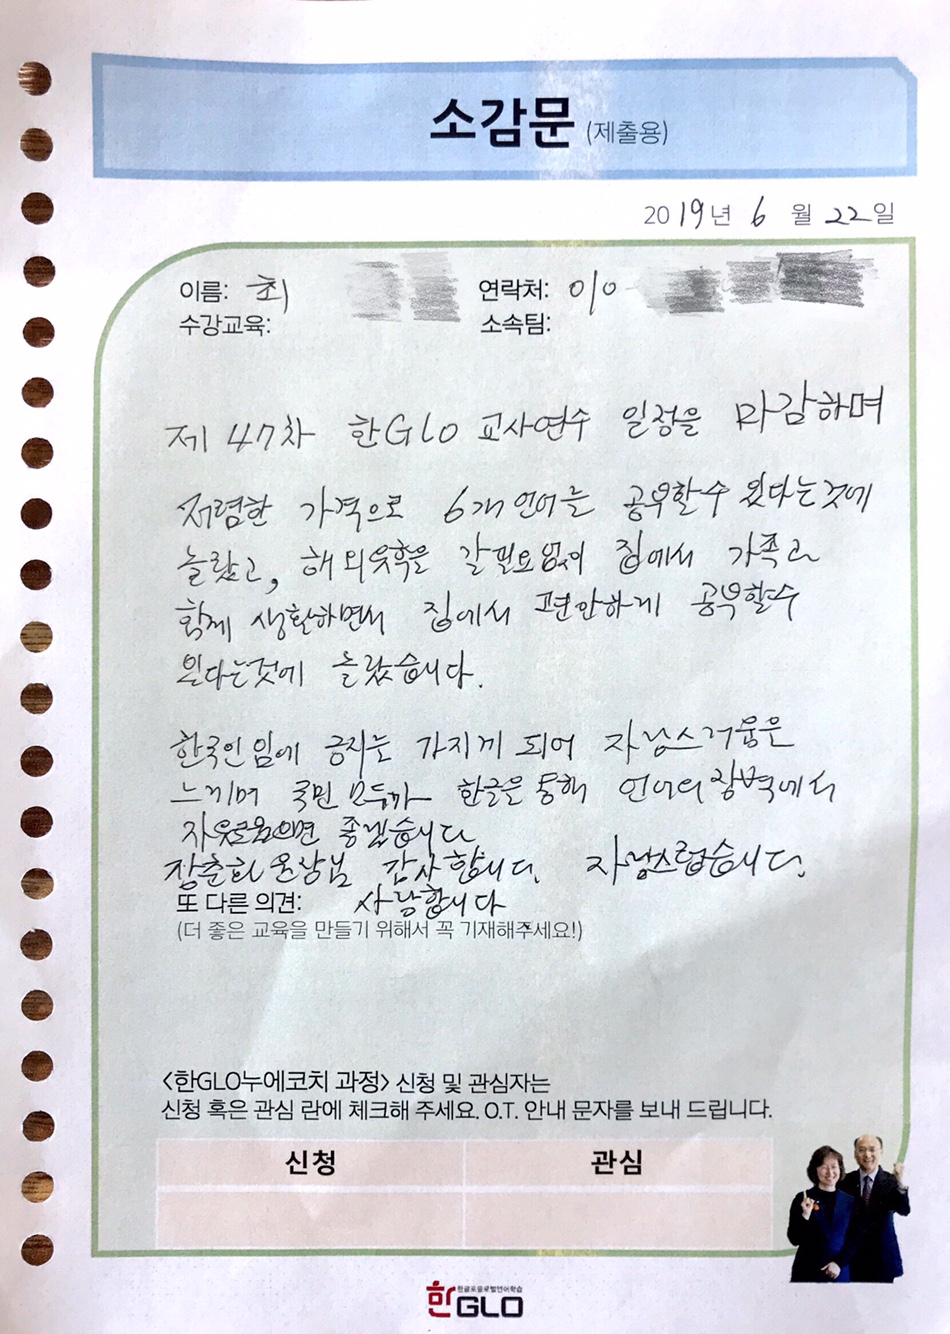 소감문 (제출용)
2019년 6월 22일
이름: 최
연락처: 010-
수강교육:
소속팀:
제 47차 한GLO 교사연수 일정을 마감하며
저렴한 가격으로 6개 언어를 공부할수 있다는것에
놀랐고, 해외유학을 갈필요없이 집에서 가족과
함께 생활하면서 집에서 편안하게 공부할수
있다는것에 놀랐습니다.
한국인임에 긍지를 가지게 되어 자랑스러움을
느끼며 국민 모두가 한글을 통해 언어의 장벽에서
자유로웠으면 좋겠습니다
장춘화 온상님 감사합니다. 자랑스럽습니다.
또 다른 의견: 사랑합니다
(더 좋은 교육을 만들기 위해서 꼭 기재해주세요!)
<한GLO누에코치 과정> 신청 및 관심자는
신청 혹은 관심 란에 체크해 주세요. O.T. 안내 문자를 보내 드립니다.
신청 관심
한글로글로벌언어학습
한GLO